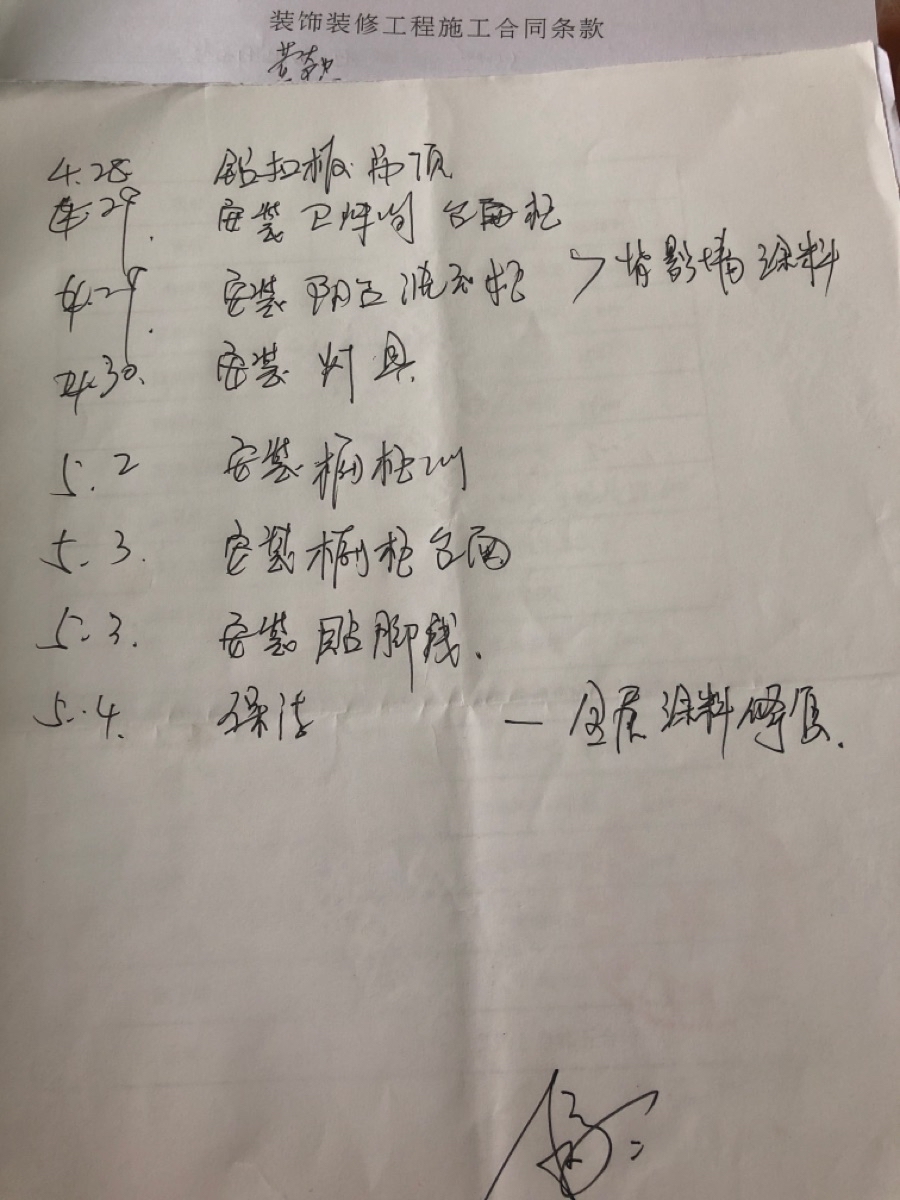 装饰装修工程施工合同条款
4.28 铝扣板吊顶
4.29. 安装卫生间台面柜
4.29. 安装阳台洗衣柜 > 背景墙涂料
4.30. 安装灯具
5.2 安装橱柜
5.3. 安装橱柜台面
5.3. 安装贴脚线.
5.4. 保洁 — 全屋涂料修复.